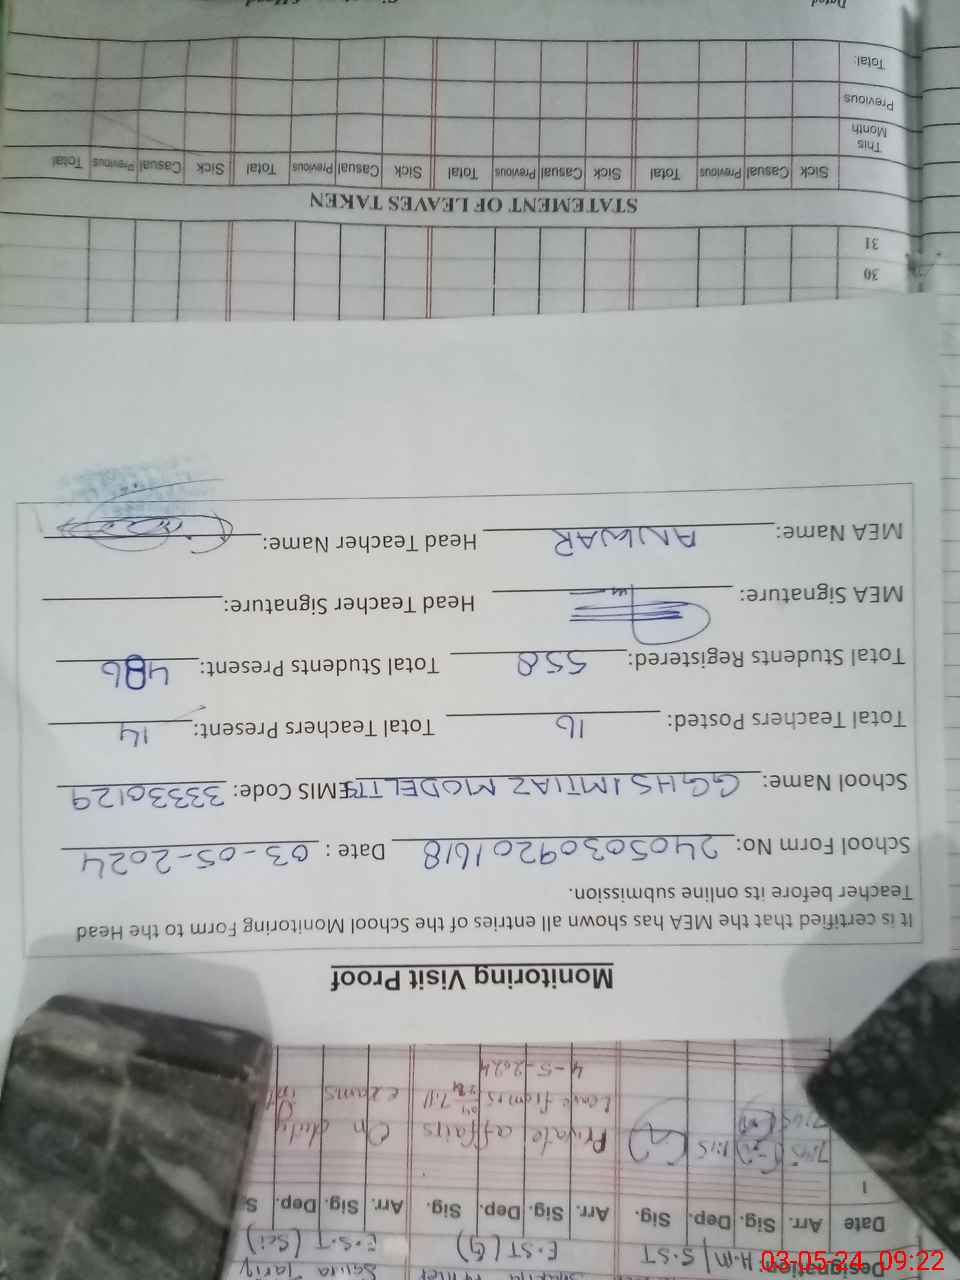 Saira Tariq
Designation: H.M / S.ST E.ST (G) E.S.T (Sci)
Date Arr. Sig. Dep. Sig. Arr. Sig. Dep. Sig. Arr. Sig. Dep. S
1
7:45 1:15 Private affairs On duty
7:45 Leave from exams
4-5-2024
Monitoring Visit Proof
It is certified that the MEA has shown all entries of the School Monitoring Form to the Head
Teacher before its online submission.
School Form No: 24050309201618 Date : 03-05-2024
School Name: GGHS IMTIAZ MODEL EMIS Code: 33330129
Total Teachers Posted: 16 Total Teachers Present: 14
Total Students Registered: 558 Total Students Present: 486
MEA Signature: Head Teacher Signature:
MEA Name: ANWAR Head Teacher Name:
30
31
STATEMENT OF LEAVES TAKEN
Sick Casual Previous Total Sick Casual Previous Total Sick Casual Previous Total Sick Casual Previous Total
This
Month
Previous
Total:
Dated
03-05-24 09:22